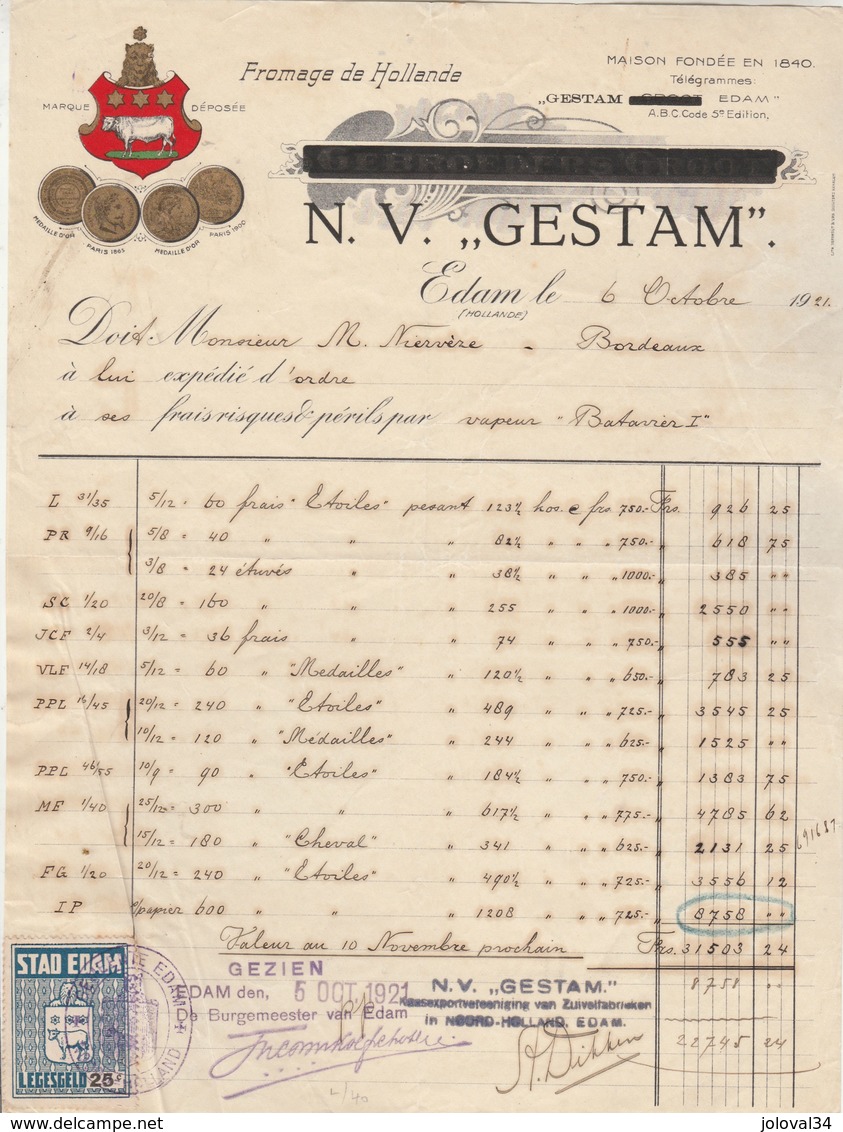 Fromage de Hollande
MAISON FONDÉE EN 1840.
Télégrammes:
„GESTAM EDAM"
A.B.C. Code 5e Edition,
MARQUE DÉPOSÉE
MEDAILLE D'OR PARIS 1865 MEDAILLE D'OR PARIS 1900
GEBROEDERS GROOT
N. V. „GESTAM".
Edam le 6 Octobre 1921.
(HOLLANDE)
Doit Monsieur M. Niervèze - Bordeaux
à lui expédié d'ordre
à ses frais risques & périls par vapeur "Batavier I"
L 31/35 5/12 = 60 frais "Etoiles" pesant 123½ kos. e frs. 750.- Frs. 926 25
PR 9/16 5/8 = 40 " " " 82½ " " " 750.- " 618 75
3/8 = 24 étuvés " " 38½ " " " 1000.- " 385 " "
SC 1/20 20/8 = 160 " " " 255 " " " 1000.- " 2550 " "
JCF 2/4 3/12 = 36 frais " " 74 " " " 750.- " 555 " "
VLF 14/18 5/12 = 60 " "Medailles" " 120½ " " " 650.- " 783 25
PPL 16/45 20/12 = 240 " "Etoiles" " 489 " " " 725.- " 3545 25
10/12 = 120 " "Médailles" " 244 " " " 625.- " 1525 " "
PPL 46/55 10/9 = 90 " "Etoiles" " 184½ " " " 750.- " 1383 75
MF 1/40 25/12 = 300 " " " 617½ " " " 775.- " 4785 62
15/12 = 180 " "Cheval" " 341 " " " 625.- " 2131 25
691687
FG 1/20 20/12 = 240 " "Etoiles" " 490½ " " " 725.- " 3556 12
IP s/papier 600 " " " 1208 " " " 725.- " 8758 " "
Valeur au 10 Novembre prochain Frs. 31503 24
8758 " "
22745 24
STAD EDAM
LEGESGELD 25 c
GEMEENTE EDAM HOLLAND
GEZIEN
EDAM den, 5 OCT 1921
De Burgemeester van Edam
N.V. „GESTAM."
Kaasexportvereeniging van Zuivelfabrieken
in NOORD-HOLLAND, EDAM.
A. Dikken
L/40
joloval34